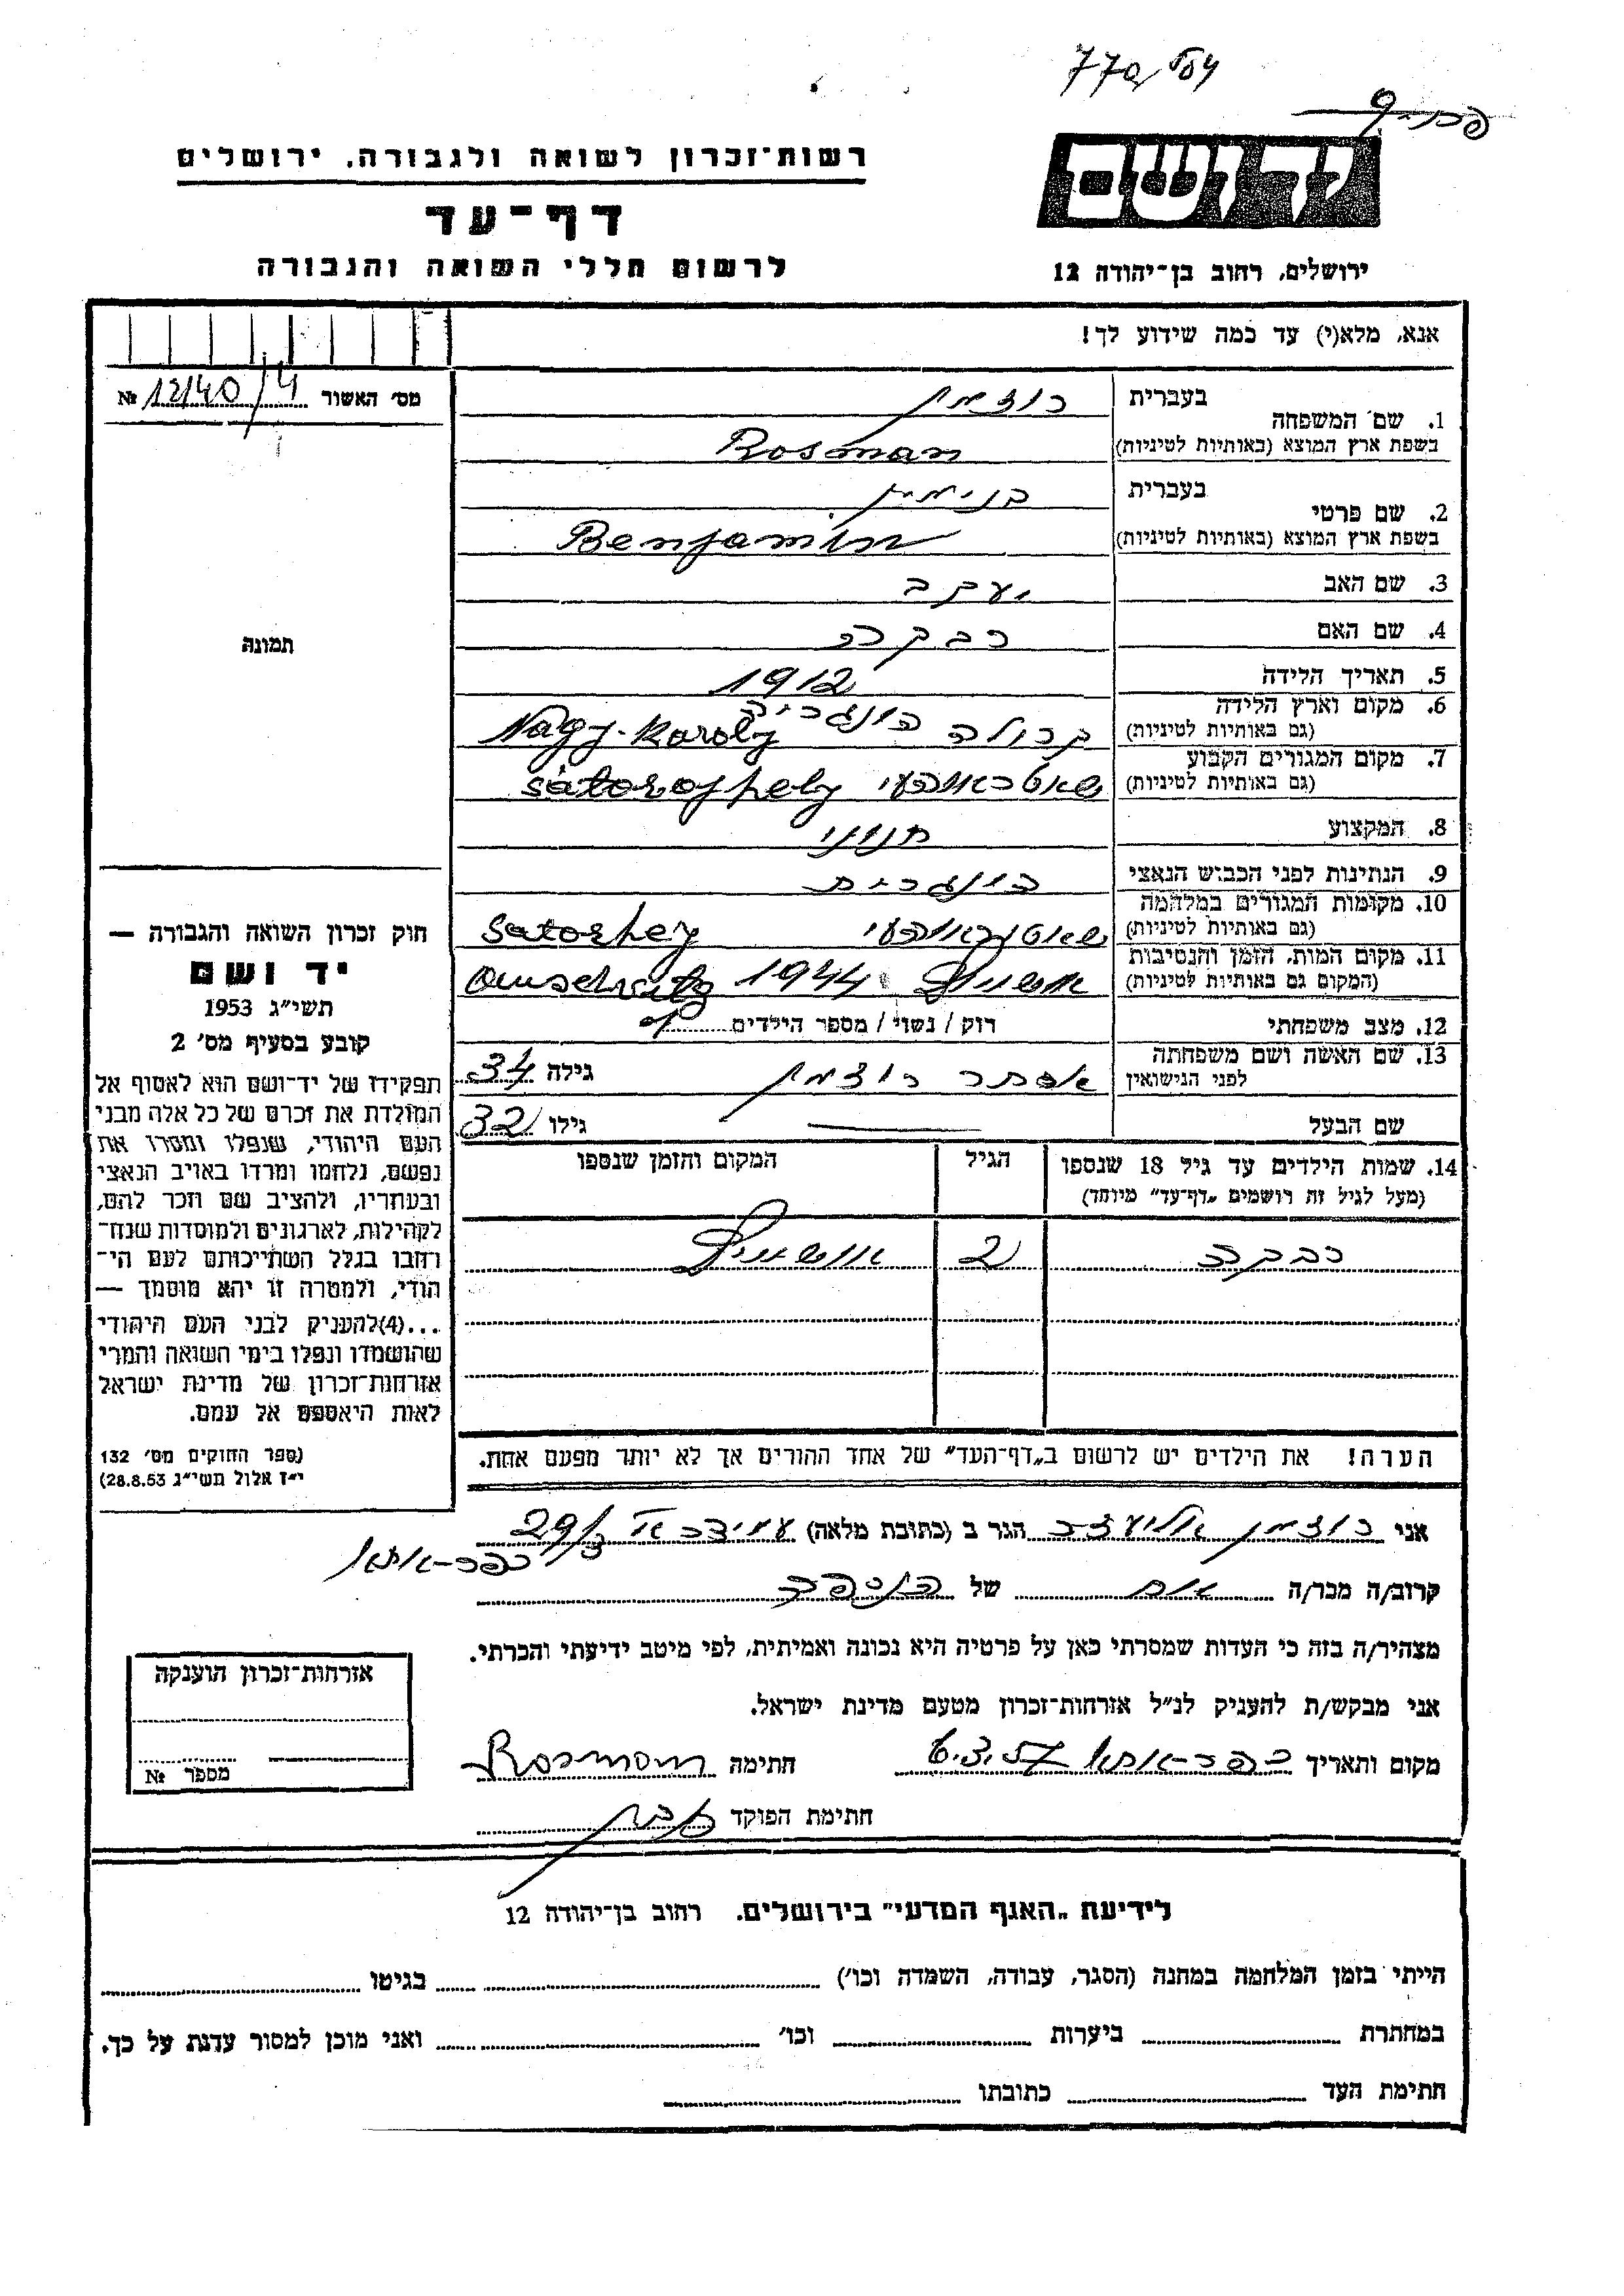 רשות־זכרון לשואה ולגבורה, ירושלים
דף־עד
לרשום חללי השואה והגבורה
יד ושם
ירושלים, רחוב בן־יהודה 12
אנא, מלא(י) עד כמה שידוע לך!
מס׳ האשור 12140/4 №
תמונה
1. שם המשפחה בעברית רוזמן
בשפת ארץ המוצא (באותיות לטיניות) Rosman
2. שם פרטי בעברית בנימין
בשפת ארץ המוצא (באותיות לטיניות) Benjamin
3. שם האב יעקב
4. שם האם רבקה
5. תאריך הלידה 1912
6. מקום וארץ הלידה (גם באותיות לטיניות) קרולה הונגריה Nagy-Karoly
7. מקום המגורים הקבוע (גם באותיות לטיניות) Sátorojhely
8. המקצוע חנוני
9. הנתינות לפני הכבוש הנאצי הונגרית
10. מקומות המגורים במלחמה (גם באותיות לטיניות) Satorhey
11. מקום המות, הזמן והנסיבות (המקום גם באותיות לטיניות) אושוויץ 1944 Auschwitz
12. מצב משפחתי רווק / נשוי / מספר הילדים
13. שם האשה ושם משפחתה לפני הנישואין אסתר רוזמן גילה 34
שם הבעל גילו 32
14. שמות הילדים עד גיל 18 שנספו הגיל המקום והזמן שנספו
(מעל לגיל זה רושמים „דף־עד” מיוחד)
רבקה 2 אושוויץ
הערה! את הילדים יש לרשום ב„דף־העד” של אחד ההורים אך לא יותר מפעם אחת.
חוק זכרון השואה והגבורה —
יד ושם
תשי״ג 1953
קובע בסעיף מס׳ 2
תפקידו של יד־ושם הוא לאסוף אל
המולדת את זכרם של כל אלה מבני
העם היהודי, שנפלו ומסרו את
נפשם, נלחמו ומרדו באויב הנאצי
ובעוזריו, ולהציב שם וזכר להם,
לקהילות, לארגונים ולמוסדות שנח־
רבו בגלל השתייכותם לעם הי־
הודי, ולמטרה זו יהא מוסמך —
...(4)להעניק לבני העם היהודי
שהושמדו ונפלו בימי השואה והמרי
אזרחות־זכרון של מדינת ישראל
לאות היאספם אל עמם.
(ספר החוקים מס׳ 132
י״ז אלול תשי״ג 28.8.53)
אני רוזמן אליעזר הגר ב (כתובת מלאה) 29/3
כפר־אתא
קרוב/ה מכר/ה אח של הנספה
מצהיר/ה בזה כי העדות שמסרתי כאן על פרטיה היא נכונה ואמיתית, לפי מיטב ידיעתי והכרתי.
אני מבקש/ת להעניק לנ״ל אזרחות־זכרון מטעם מדינת ישראל.
מקום ותאריך כפר־אתא 6.3.57 חתימה Rosman
חתימת הפוקד
אזרחות־זכרון הוענקה
מספר №
לידיעת „האגף המדעי” בירושלים. רחוב בן־יהודה 12
הייתי בזמן המלחמה במחנה (הסגר, עבודה, השמדה וכו׳) בגיטו
במחתרת ביערות וכו׳ ואני מוכן למסור עדות על כך.
חתימת העד כתובתו